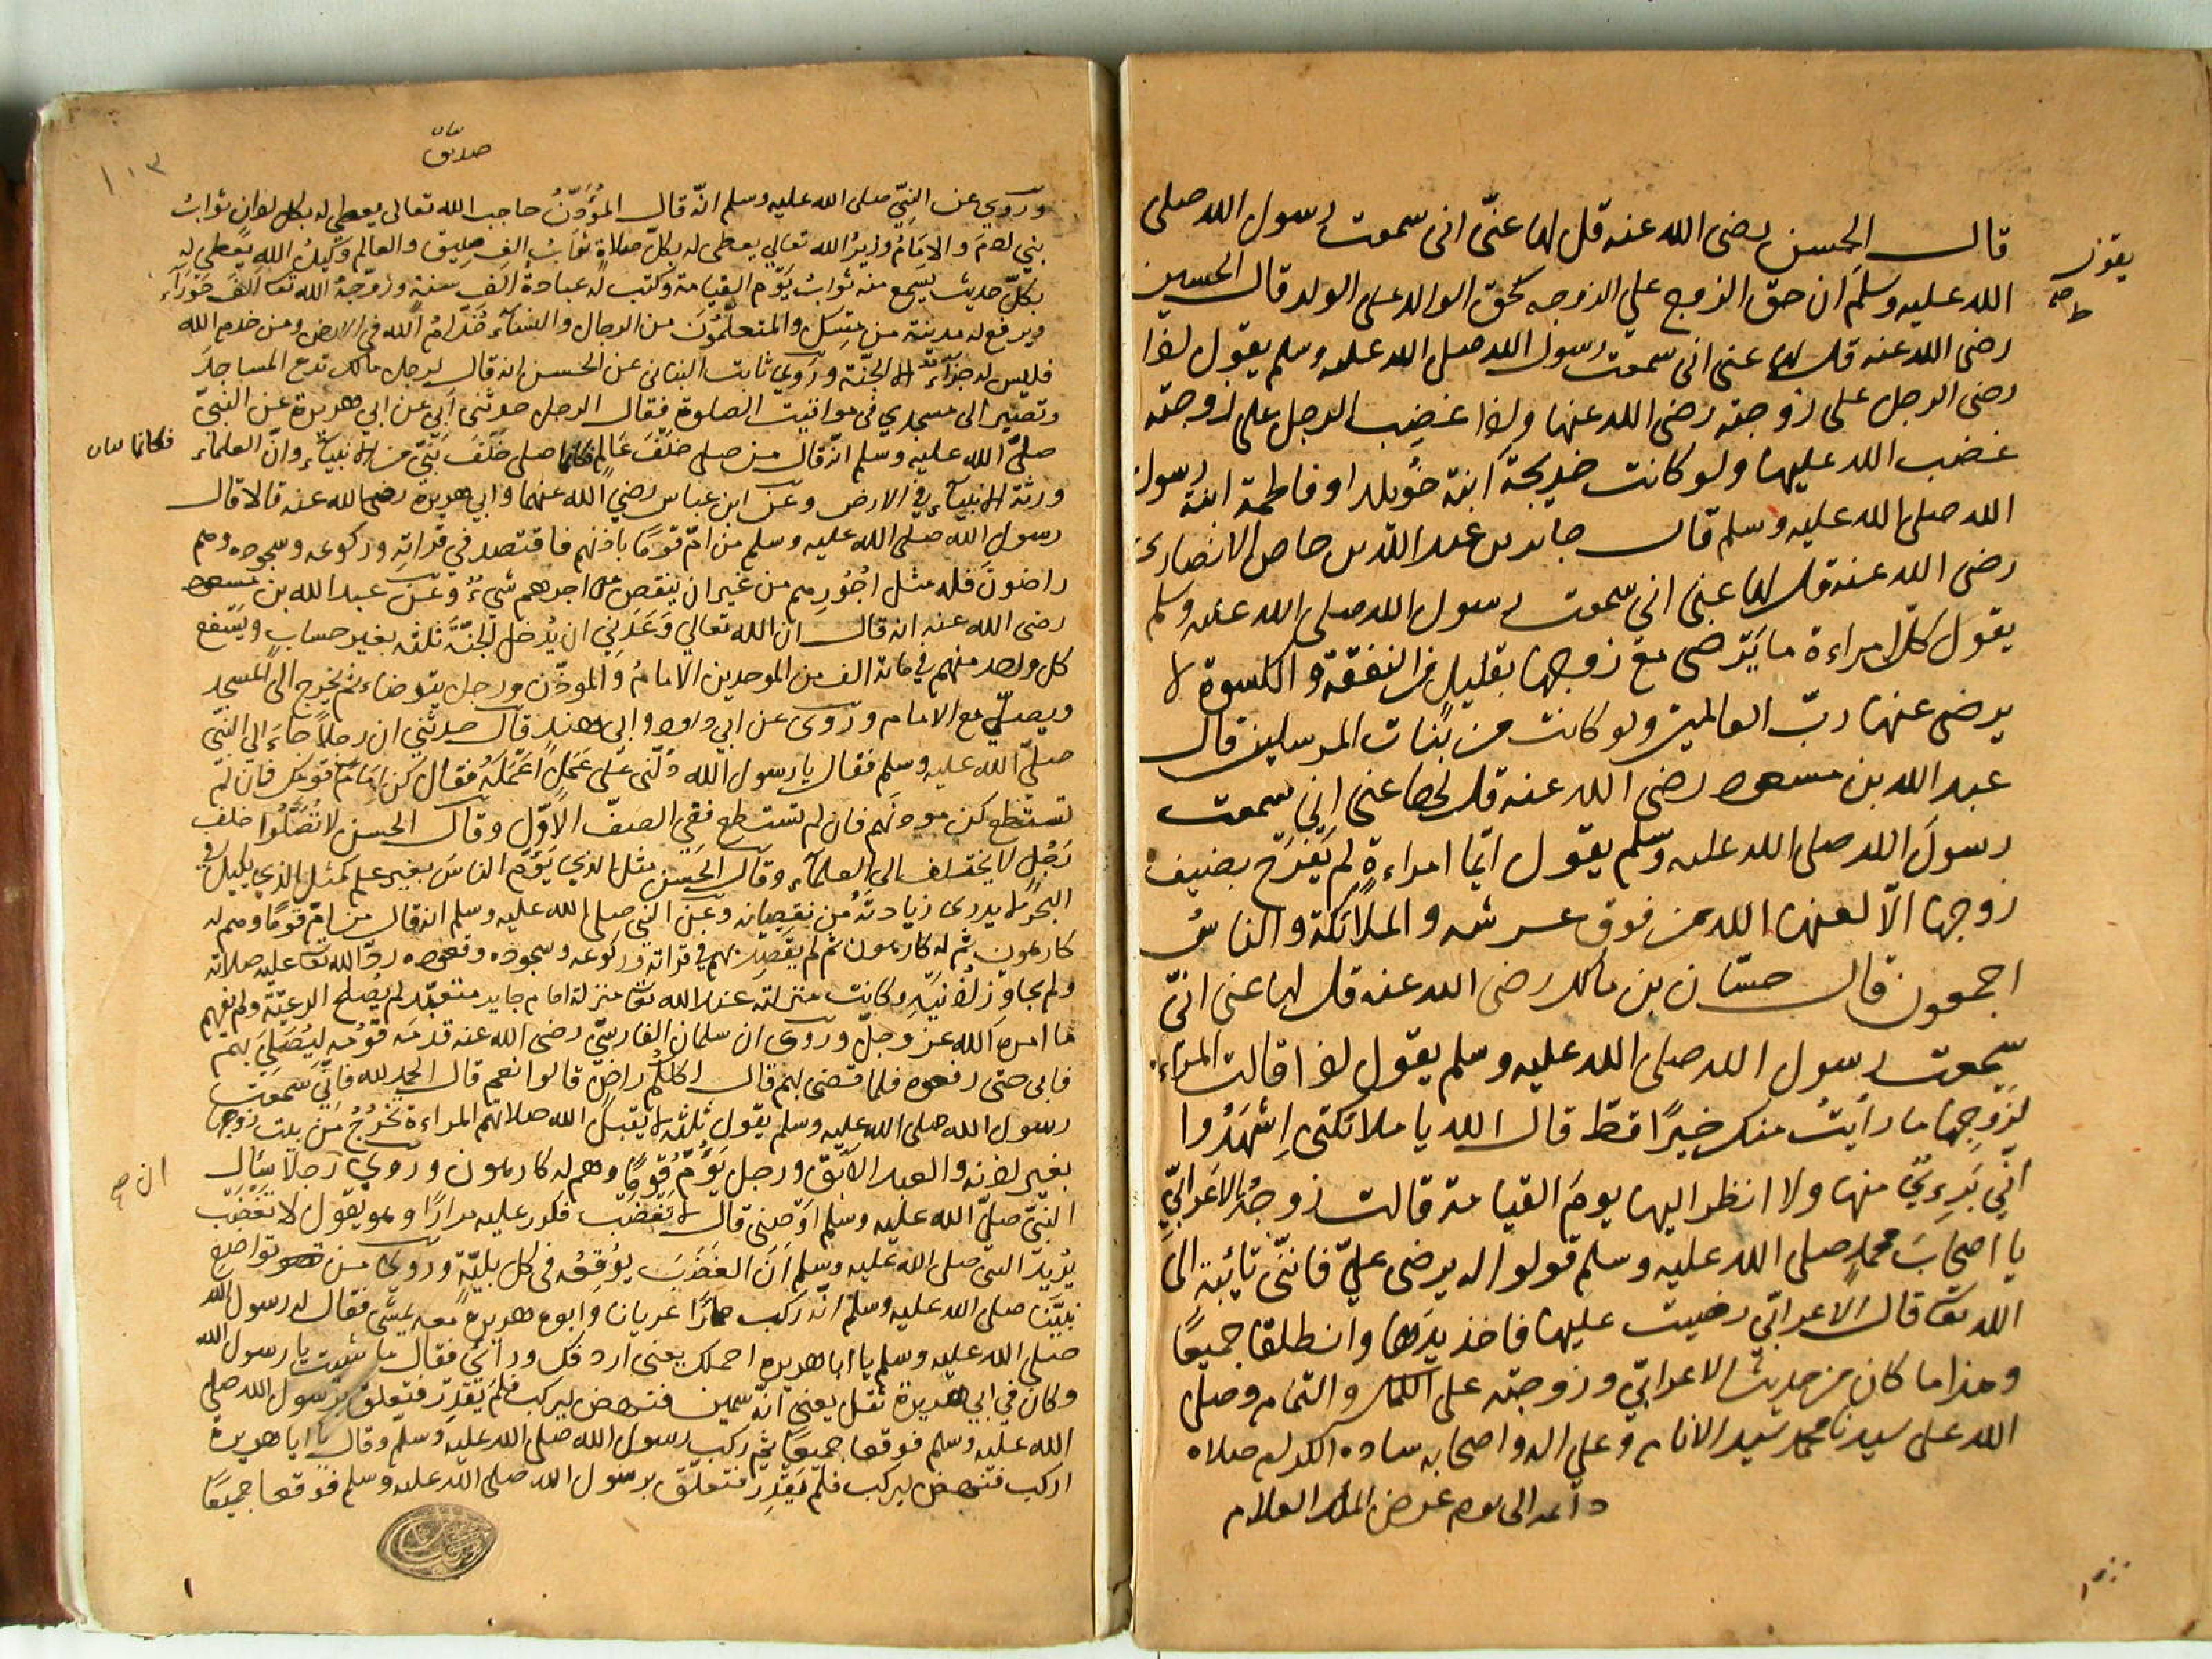 قال الحسن رضى الله عنه قل لها عنّى انى سمعت رسول الله صلى
الله عليه وسلم ان حق الزوج علي الزوجه كحق الوالد على الولد قال الحسين
رضى الله عنه قل لها عنى انى سمعت رسول الله صلى الله عليه وسلم يقول اذا
رضى الرجل على زوجته رضى الله عنها واذا غضب الرجل على زوجته
غضب الله عليها ولو كانت خديجة ابنة خويلد او فاطمة ابنة رسول
الله صلى الله عليه وسلم قال جابر بن عبد الله الانصارى
رضى الله عنه قل لها عنى انى سمعت رسول الله صلى الله عليه وسلم
يقول كل امراءة ما ترضى مع زوجها بقليل من النفقة و الكسوة لا
يرضى عنها ربّ العالمين ولو كانت من بنات المرسلين قال
عبد الله بن مسعود رضى الله عنه قل لها عنى انى سمعت
رسول الله صلى الله عليه وسلم يقول ايّما امراءة لم تفرح بضيف
زوجها الّا لعنها الله من فوق عرشه و الملائكة و الناس
اجمعون قال حسّان بن مالك رضى الله عنه قل لها عنى انّى
سمعت رسول الله صلى الله عليه وسلم يقول اذا قالت المراءة
لزوجها ما رأيتُ منك خيرًا قطّ قال الله يا ملائكتى اِشهَدُوا
انّى بَرِيءٌ منها ولا انظر اليها يومَ القيامة قالت زوجة الاعرابيّ
يا اصحابَ محمدٍ صلى الله عليه وسلم قولوا له يرضى عليّ فانّنى تائبة الى
الله تعا قال الاعرابى رضيت عليها فاخذ بيدها وانطلقا جميعًا
وهذا ما كان من حديث الاعرابيّ وزوجته على الكمال والتمام وصلى
الله على سيدنا محمد سيد الانام وعلى اله واصحابه ساده الكرام صلاه
دائمه الى يوم عرض الملك العلام
يقول
صح
١٠٣
وروي عن النبيّ صلى الله عليه وسلم انّه قال المؤذّنُ حاجب الله تعالى يعطى له بكل اذان ثوابُ
والامامُ وزيرُ الله تعالي يعطى له بكلّ صلاةٍ ثوابُ الف صدّيق والعالم وكيلُ اللهِ يعطى له
بكلّ حديث يسمع منه ثوابُ يوم القيامة وكتب له عبادة الف سنة وزوّجهُ الله تعا الف حوراء
ويرفع له مدينة من مسك والمتعلّمُونَ من الرجال والنسآء خدّامُ اللّه في الارض ومن خدم الله
فليس له جزآء الا الجنّة وروي ثابت البنانى عن الحسن انه قال لرجل مالك تدع المساجدَ
وتصير الى مسجدي في مواقيت الصلوة فقال الرجل حدثنى ابي عن ابي هريرة عن النبيّ
صلىّ الله عليه وسلم انّه قال من صلى خلفَ عالم فكانما صلى خلفَ نبيّ من الانبيآء وانّ العلماء
ورثة الانبيآء في الارض وعن ابن عباس رضي الله عنهما وابي هريرة رضى الله عنه قالا قال
رسول الله صلى الله عليه وسلم من امّ قومًا باذنهم فاقتصد في قرائته وركوعه وسجوده وهم
راضونَ فله مثل اجُورِهم من غير ان ينقص من اجرهم شيءٌ وعن عبد الله بن مسعود
رضى الله عنه انه قال ان الله تعالي وَعَدَنِي ان يُدخل الجنّة ثلثه بغير حساب ويشفع
كل واحد منهم في مائة الف من الموحدين الامامُ والموذّن ورجل يتوضاء ثم يخرج الى المسجد
ويصلّي مع الامام وروى عن ابي داود وابي هند قال حدثني ان رجلًا جاءَ الي النبيّ
صلىّ الله عليه وسلم فقال يا رسول الله دُلّنى على عَمَلٍ اَعْمَلهُ فقال كن اِمَامَ قومك فان لم
تستطع كن موذنهم فان لم تستطع ففي الصفّ الاوّل وقال الحسن لا تُصَلّوا خلف
رَجُلٍ لا يختلف الى العلمآء وقال الحسن مثل الذي يؤمّ الناسَ بغير علم كمثل الذي يكيل في
البحر لا يدرى زيادتَه من نقصانه وعن النبيّ صلى الله عليه وسلم انه قال من امّ قومًا وهم له
كارهون ثم لم يقتصد بهم في قرائته وركوعه وسجوده وقعوده ردّ الله تعا عليه صلاته
ما امره الله عز وجلّ وروى ان سلمان الفارسيّ رضى الله عنه قدمه قومُه ليُصَلّى بهم
فابى حتى دفعوه فلما قضى بهم قال اكلّكم راضٍ قالوا نعم قال الحمد لله فانّي سمعت
رسول الله صلى الله عليه وسلم يقول ثلثه لا يقبل الله صلاتهم المراءة تخرُجُ من بيت زوجها
بغير اذنه والعبد الآبق ورجل يَؤُمّ قومًا وهم له كارهون وروي رجلا سئال
النبىّ صلىّ الله عليه وسلم اَوْصنى قال لا تغضب فكرر عليه مرارًا وهو يقول لا تغضب
يُريدُ النبى صلى الله عليه وسلم اَنّ الغضَبَ يوُقِعُه في كل بليّةٍ وروي من تواضع
نبيّنا صلى الله عليه وسلم انّه ركب حمارًا عريانا وابو هريرة معه يمشى فقال له رسول الله
صلى الله عليه وسلم يا ابا هريرة احملك يعنى اردفك ورائي فقال ما شئت يا رسول الله
وكان في ابي هريرة ثقل يعني انّه سمين فنهض ليركب فلم يقدر فتعلق برسول الله صلى
الله عليه وسلم فوقعا جميعًا ثم ركب رسول الله صلى الله عليه وسلم وقال يا ابا هريرة
اركب فنهض ليركب فلم يقدِر فتعلّق برسول الله صلى الله عليه وسلم فوقعا جميعًا
فكانما
ان صح
١